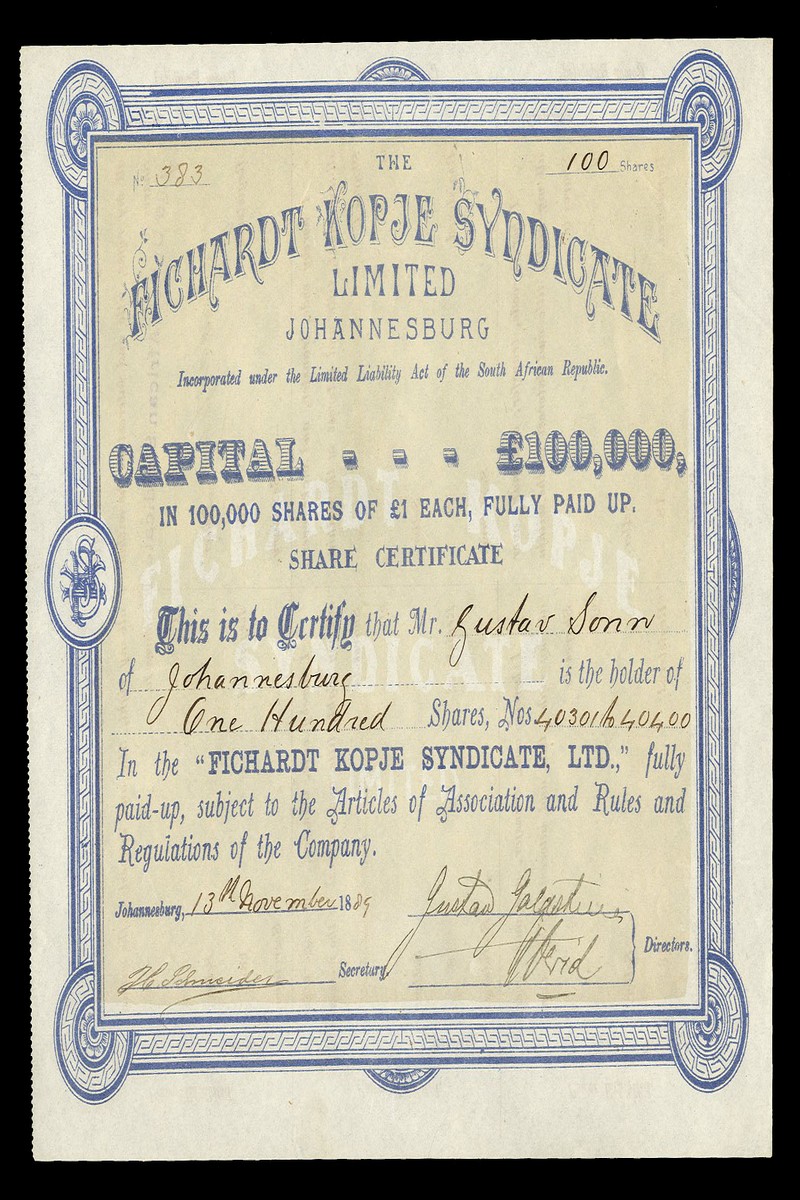 THE
No. 383
100 Shares
FICHARDT KOPJE SYNDICATE
LIMITED
JOHANNESBURG
Incorporated under the Limited Liability Act of the South African Republic.
CAPITAL - - - £100,000,
IN 100,000 SHARES OF £1 EACH, FULLY PAID UP.
SHARE CERTIFICATE
This is to Certify that Mr. Gustav Sonn
of Johannesburg is the holder of
One Hundred Shares, Nos 40301 to 40400
In the "FICHARDT KOPJE SYNDICATE, LTD.," fully
paid-up, subject to the Articles of Association and Rules and
Regulations of the Company.
Johannesburg, 13th November 1889
Gustav
Schneider Secretary.
Directors.
FICHARDT KOPJE
SYNDICATE